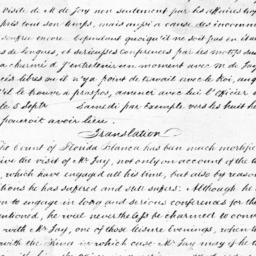 visite de M. de Jay non seulement par les affaires qui
pris tout son temps, mais aussi a cause des incommo
souffre encore. Cependant quoiqu'il ne soit pas en état
de longues, et serieuses conferences par les motifs sus
charmé d'entretenir un moment avec M. de Jay
ées libres ou il n'y a point de travail avec le Roi, au
s'il le trouve à propos, amener avec lui l'officier
le 5 Septre Samedi par Exemple vers les huit he
pouvoit avoir lieu.
Translation
The Count of Florida Blanca has been much mortifie
ive the visit of Mr Jay, not only on account of the b
, which have engaged all his time, but also by reason
tions he has suffered and still suffers. Although he i
n to engage in long and serious conferences for the
entioned, he will nevertheless be charmed to conv
with Mr Jay, one of those leisure evenings, when th
with the King in which case Mr Jay may if he th